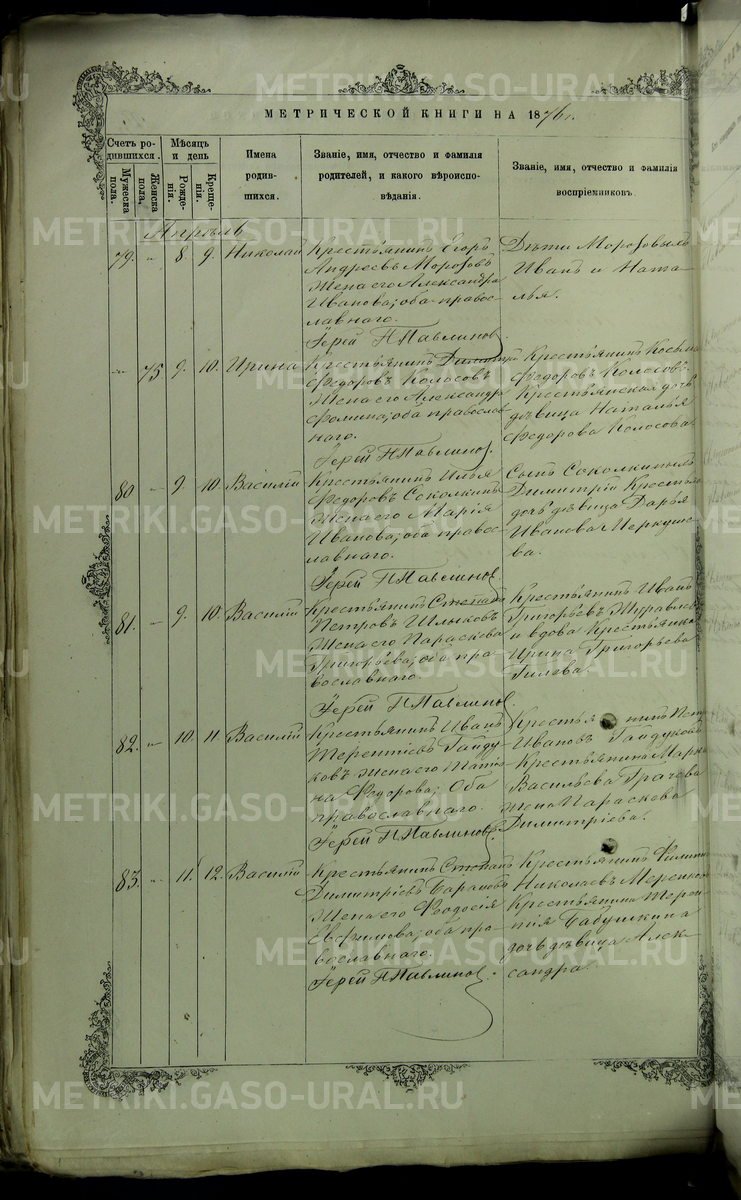 МЕТРИЧЕСКОЙ КНИГИ НА 1876 г.
Счетъ ро-
дившихся.
Мужеска
пола.
Женска
пола,
Мѣсяцъ
и день
Рожде-
нія.
Креще-
нія.
Имена
родив-
шихся.
Званіе, имя, отчество и фамилія
родителей, и какого вѣроиспо-
вѣданія.
Званіе, имя, отчество и фамилія
воспріемниковъ.
Апрѣль
79. " 8. 9. Николай
Крестьянинъ Егоръ
Андреевъ Морозовъ
Жена его Александра
Иванова; оба правос-
лавнаго.
Іерей П Павлиновъ
Дѣти Морозовыхъ
Иванъ и Ната-
лья.
" 75 9. 10. Ирина
Крестьянинъ Димитрій
Ѳедоровъ Колосовъ
Жена его Александра
Ѳомина; оба православ
наго.
Іерей П Павлиновъ.
Крестьянинъ Косьма
Ѳедоровъ Колосовъ.
Крестьянская дочь
дѣвица Наталья
Ѳедорова Колосова.
80 " 9. 10. Василій
Крестьянинъ Илья
Ѳедоровъ Соколкинъ
Жена его Марія
Иванова; оба правос-
лавнаго.
Іерей П Павлиновъ
Сынъ Соколкиныхъ
Димитрій
дочь дѣвица Дарья
Иванова Меркуше-
ва.
81. " 9. 10. Василій
Крестьянинъ Степанъ
Петровъ Шлыковъ
Жена его Параскева
Григорьева; оба пра-
вославнаго.
Іерей П Павлиновъ.
Крестьянинъ Иванъ
Григорьевъ
и вдова Крестьянка
Ирина Григорьева
Гилева.
82. " 10. 11. Василій
Крестьянинъ Иванъ
Терентіевъ Гайду-
ковъ Жена его Татья-
на Ѳедорова; Оба
православнаго.
Іерей П Павлиновъ.
Крестьянинъ Петръ
Ивановъ Гайдуковъ
Крестьянина Марка
Васильева Грачева
жена Параскева
Димитріева.
83. " 11. 12. Василій
Крестьянинъ Степанъ
Димитріевъ Барановъ
Жена его Ѳеодосія
Евфимова; оба пра-
вославнаго.
Іерей П Павлиновъ.
Крестьянинъ Филиппъ
Николаевъ
Крестьянина Терен-
тія Бабушкина
дочь дѣвица Алек-
сандра.
METRIKI.GASO-URAL.RU